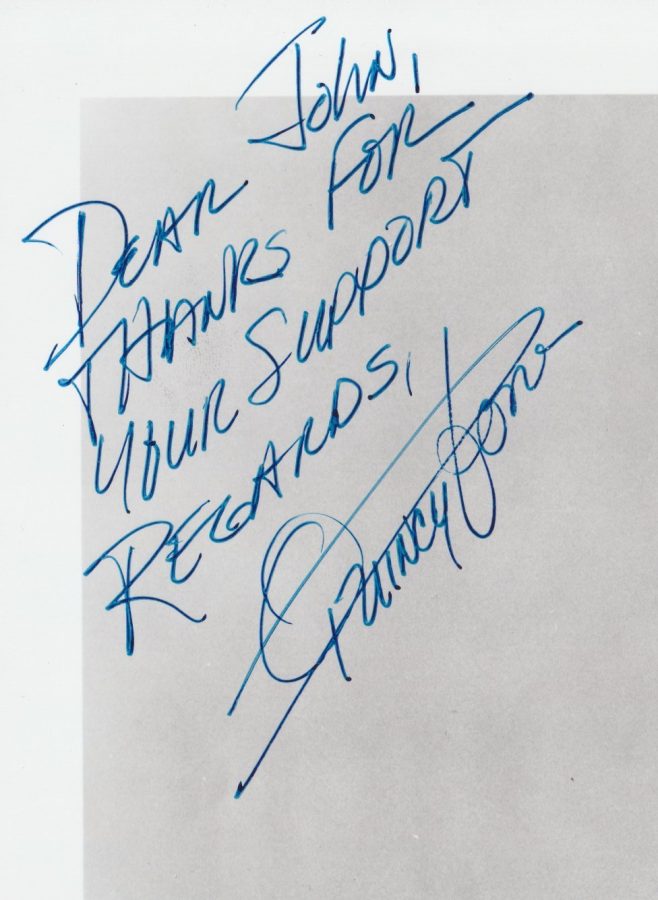 DEAR JOHN,
THANKS FOR
YOUR SUPPORT
REGARDS,
QUINCY JONES